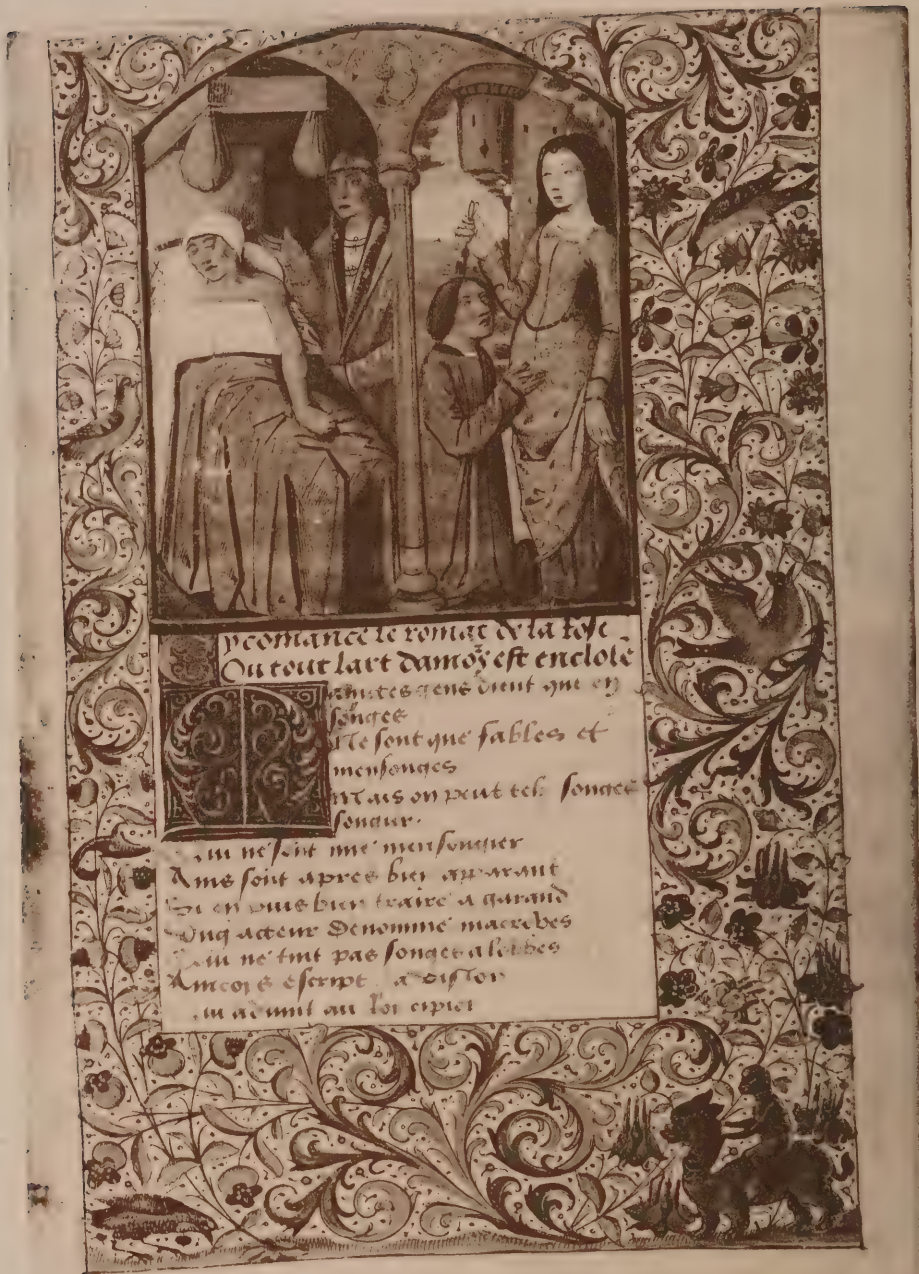 ycomance le romāt de la rose
Ou tout lart damoʳs est enclose
aintes gens dient que en
songes
Ne sont que fables et
mensonges
Mais on peut telz songes
songier.
Qui ne sont mie mensongier
Ains sont apres bien apparant
Si en puis bien traire a garand
Ung acteur denomme macrobes
Qui ne tint pas songes a lobes
Aincois escript
Qui aduint au Roi cipion